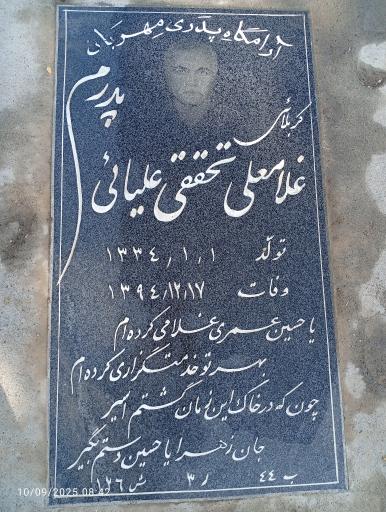 آرامگاه پدری مهربان
پدرم
کربلائی
غلامعلی تحققی علیائی
تولد ۱۳۳٤٫۱٫۱
وفات ۱۳۹٤٫۱۲٫۱۷
یا حسین عمری غلامی کرده ام
بهر تو خدمتگزاری کرده ام
چون که در خاک این زمان گشتم اسیر
جان زهرا یا حسین دستم بگیر
ب ٤٤ ر ۳ ش ۱۲٦
10/09/2025 08:42